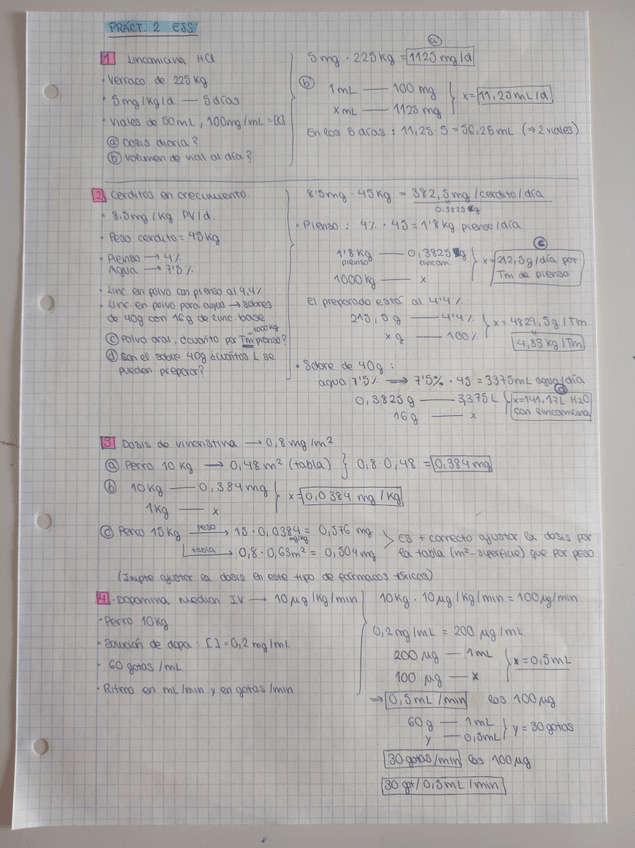 PRÁCT. 2 ESS
1 Lincomicina HCl
· Verraco de 225 kg
· 5 mg/kg/d — 5 días
· Viales de 50 mL, 100 mg/mL = []
ⓐ Dosis diaria?
ⓑ Volumen de vial al día?
ⓐ
5 mg · 225 kg = 1125 mg/d
ⓑ 1 mL — 100 mg
x mL — 1125 mg
x = 11,25 mL/d
En los 5 días : 11,25 · 5 = 56,25 mL (⇒ 2 viales).
2 Cerditos en crecimiento
· 8,5 mg/kg PV/d
· Peso cerdito = 45 kg
· Pienso → 4%
Agua → 7'5%
· Linc en polvo con pienso al 4,4%
· Linc en polvo para agua → sobres
de 40g con 16 g de linc. base
1000 kg
ⓒ Polvo oral, cuánto por Tm pienso?
ⓓ Con el sobre 40g cuántos L se
pueden preparar?
8'5 mg · 45 kg = 382,5 mg/cerdito/día
0,3825 g
· Pienso : 4% · 45 = 1'8 kg pienso/día
ⓒ
1'8 kg — 0,3825 g
pienso
1000 kg — x
x = 212,5 g/día por
Tm de pienso
El preparado está al 4'4%
215,5 g — 4'4%
x g — 100%
x = 4829,5 g/Tm
4,83 kg/Tm
· Sobre de 40g :
agua 7'5% ⇒ 7'5% · 45 = 3375 mL agua/día
ⓓ
0,3825 g — 3,375 L
16 g — x
x = 141,17 L H2O
con lincomicina
3 Dosis de vincristina → 0,8 mg/m²
ⓐ Perro 10 kg → 0,48 m² (tabla) } 0,8 · 0,48 = 0,384 mg
ⓑ 10 kg — 0,384 mg
1 kg — x
x = 0,0384 mg/kg
ⓒ Perro 15 kg peso → 15 · 0,0384 = 0,576 mg
mg/kg
tabla → 0,8 · 0,63 m² = 0,504 mg
Es + correcto ajustar la dosis por
la tabla (m² - superficie) que por peso
(Impte ajustar la dosis en este tipo de fármacos tóxicos)
4. · Dopamina Median IV → 10 µg/kg/min
· Perro 10 kg
· Solución de dopa : [ ] = 0,2 mg/mL
· 60 gotas/mL
· Ritmo en mL/min y en gotas/min
10 kg · 10 µg/kg/min = 100 µg/min
0,2 mg/mL = 200 µg/mL
200 µg — 1 mL
100 µg — x
x = 0,5 mL
⇒ 0,5 mL/min los 100 µg
60 g — 1 mL
y — 0,5 mL
y = 30 gotas
30 gotas/min los 100 µg
30 got/0,5 mL/min